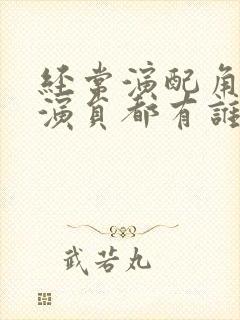 经常演配角
演员都有誰
武若丸